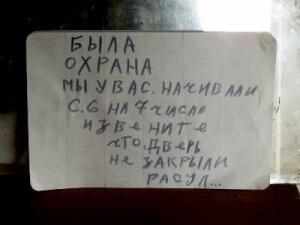 БЫЛА
ОХРАНА
МЫ У ВАС. НАЧИВАЛИ
С. 6 НА 7 ЧИСЛО
ИЗВЕНИТЕ
ЧТО, ДВЕРЬ
НЕ ЗАКРЫЛИ
РАСУЛ...